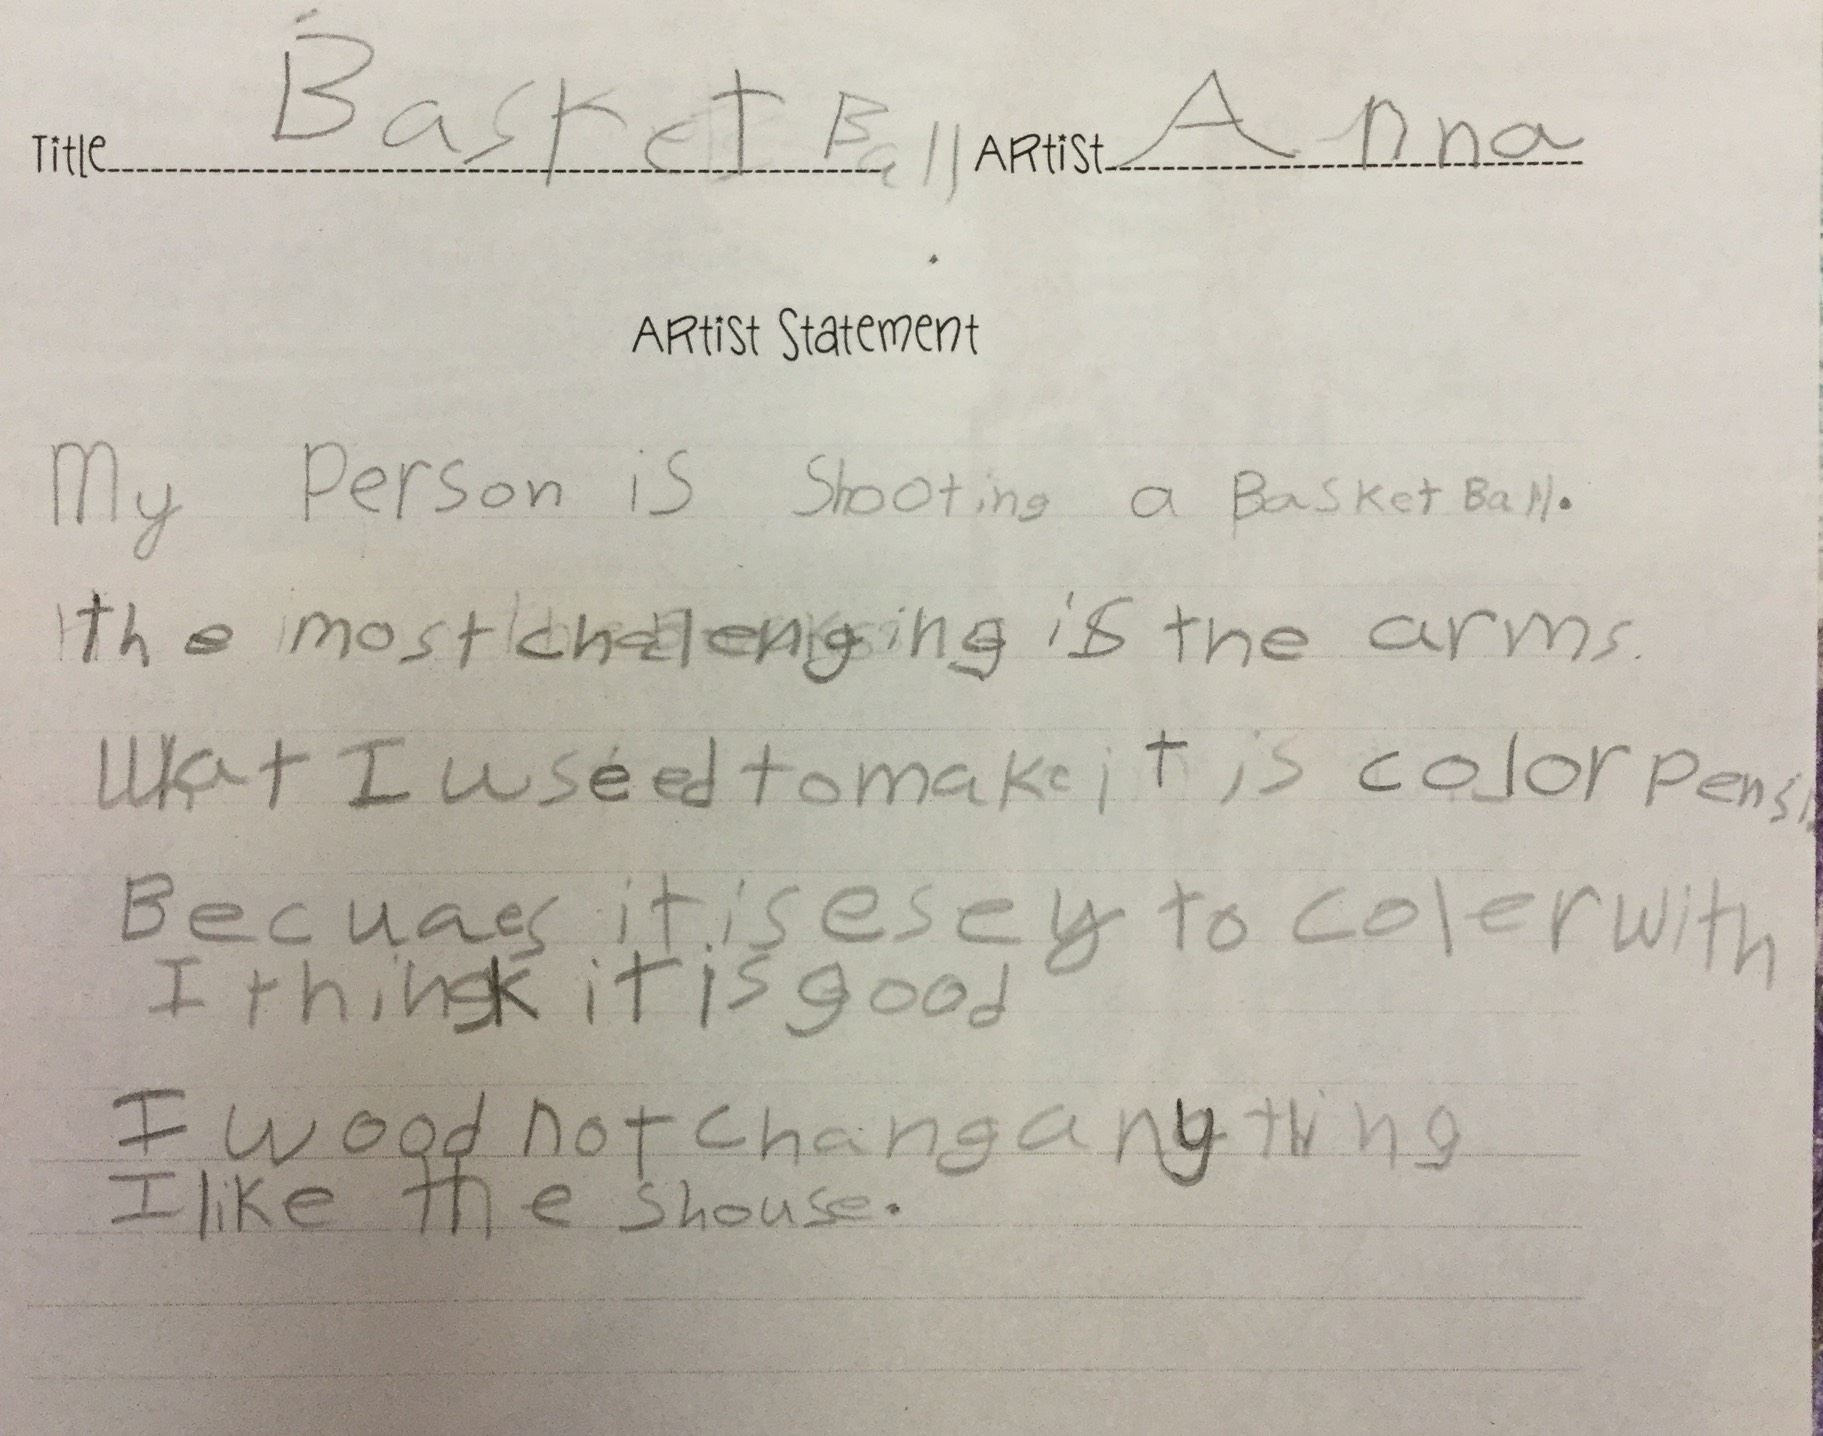 Title Basket Ball Artist Anna
Artist Statement
My Person is Shooting a Basket Ball.
the most chalenging is the arms.
What I wuseed to make it is color pensi
Becuaes it is esey to coler with
I think it is good
I wood not chang any thing
I like the shouse.